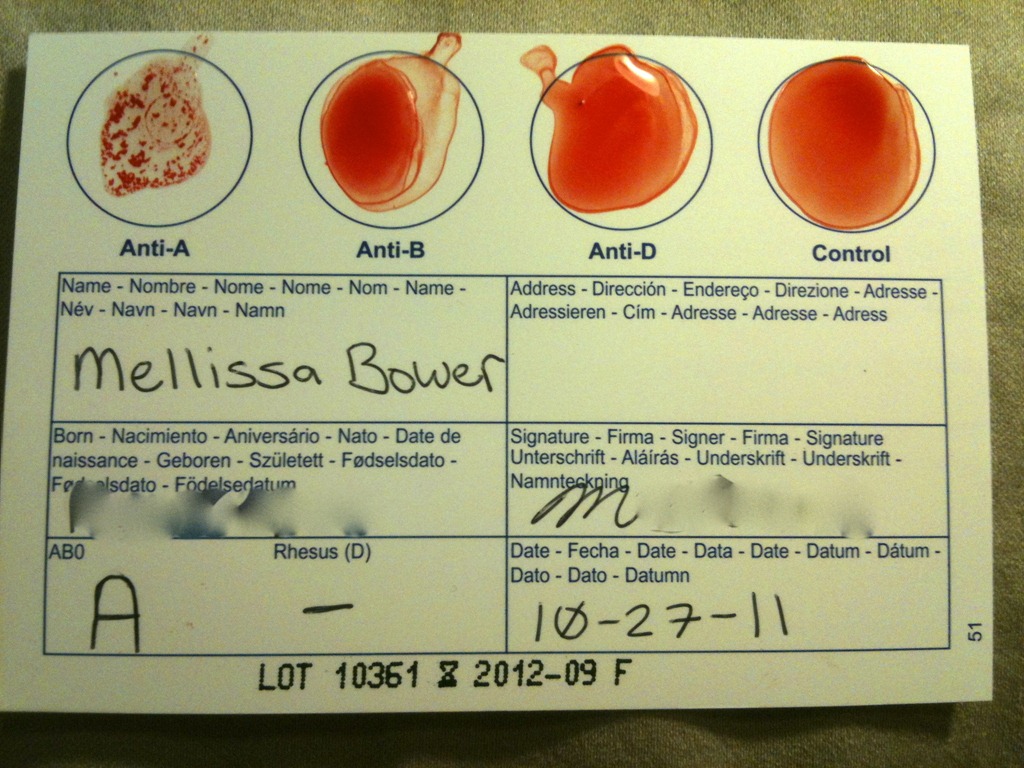 Anti-A Anti-B Anti-D Control
Name - Nombre - Nome - Nome - Nom - Name -
Név - Navn - Navn - Namn
Mellissa Bower
Address - Dirección - Endereço - Direzione - Adresse -
Adressieren - Cím - Adresse - Adresse - Adress
Born - Nacimiento - Aniversário - Nato - Date de
naissance - Geboren - Született - Fødselsdato -
Födelsedatum
Signature - Firma - Signer - Firma - Signature
Unterschrift - Aláírás - Underskrift - Underskrift -
Namnteckning
m
AB0 Rhesus (D)
A -
Date - Fecha - Date - Data - Date - Datum - Dátum -
Dato - Dato - Datumn
10-27-11
51
LOT 10361 2012-09 F